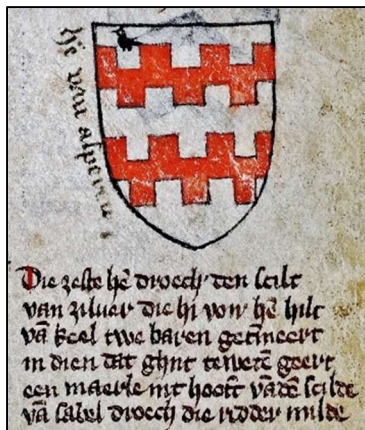 van asperen
Die zeste hē droech den scilt
van ziluer die hi voir hē hilt
vā keel twe baren getīneert
in dien dat tewerē geert
een maerle int hooft vādē scilde
vā sabel droech die ridder milde